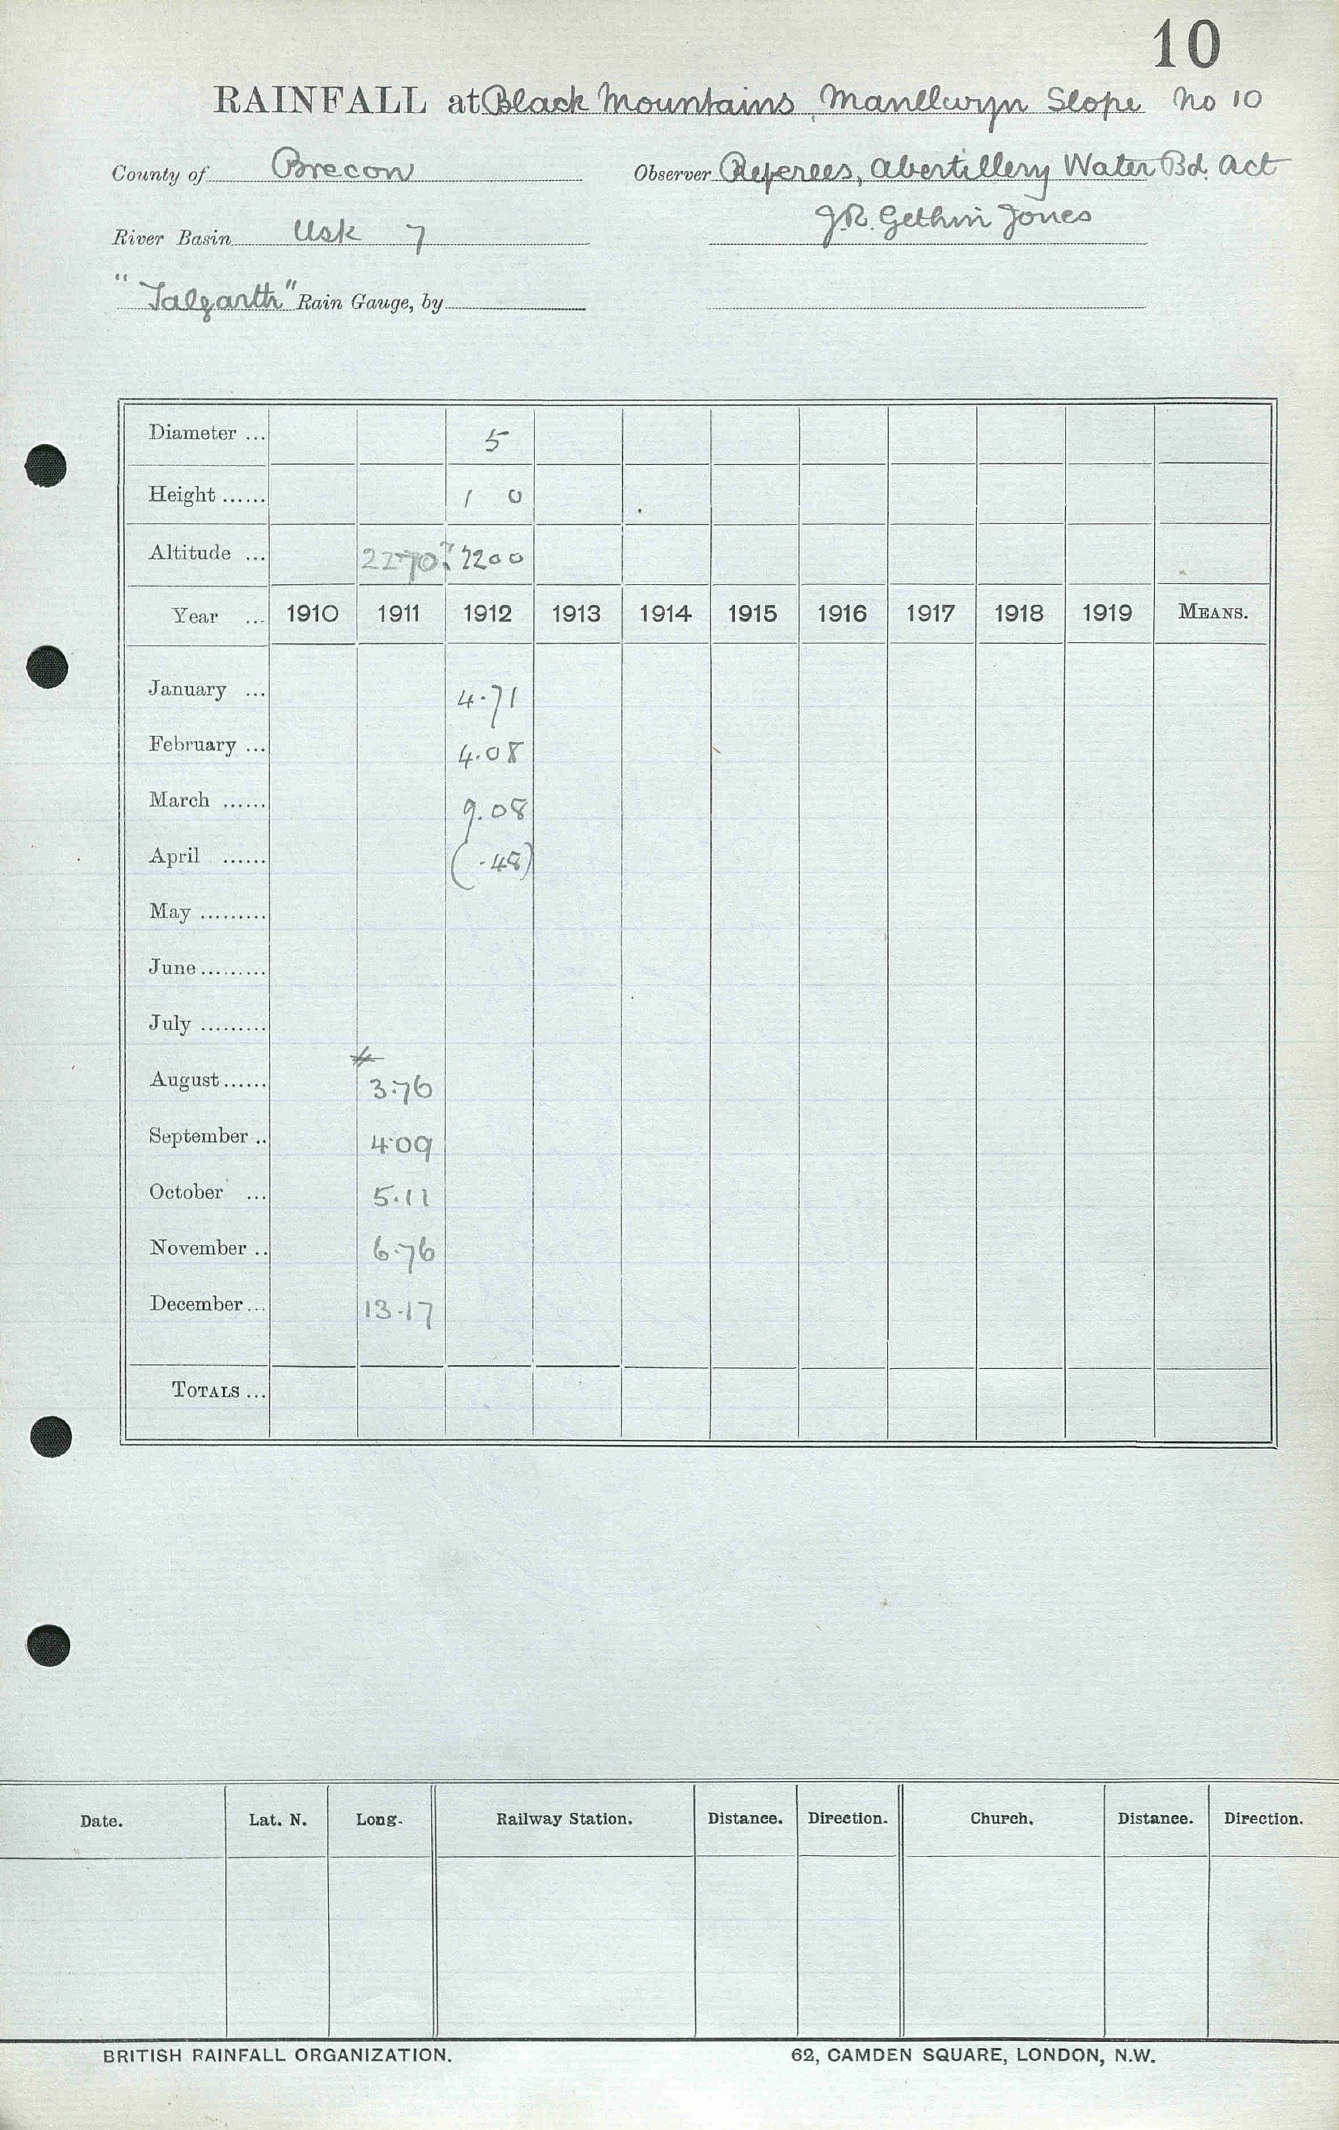 10
RAINFALL at Black Mountains, Manllwyn Slope No 10
County of Brecon Observer Referees, Abertillery Water Bd. Act
River Basin Usk 7 J.R. Gethin Jones
"Talgarth" Rain Gauge, by
Diameter ... 5
Height ...... 1 0
Altitude ... 2270? 2200
Year ... 1910 1911 1912 1913 1914 1915 1916 1917 1918 1919 MEANS.
January ... 4.71
February ... 4.08
March ...... 9.08
April ...... (.48)
May .........
June .........
July .........
August ...... 3.76
September .. 4.09
October ... 5.11
November .. 6.76
December ... 13.17
TOTALS ...
Date. Lat. N. Long. Railway Station. Distance. Direction. Church. Distance. Direction.
BRITISH RAINFALL ORGANIZATION. 62, CAMDEN SQUARE, LONDON, N.W.